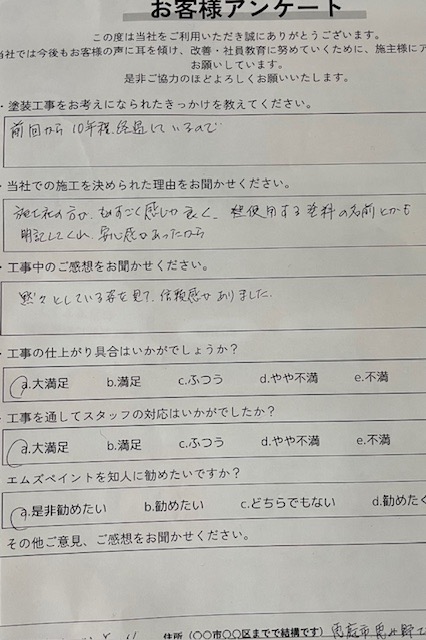 お客様アンケート
この度は当社をご利用いただき誠にありがとうございます。
当社では今後もお客様の声に耳を傾け、改善・社員教育に努めていくために、施主様にア
お願いしています。
是非ご協力のほどよろしくお願いいたします。
・塗装工事をお考えになられたきっかけを教えてください。
前回から10年程経過しているので
・当社での施工を決められた理由をお聞かせください。
施工社の方が、ものすごく感じが良く、使用する塗料の名前とかも
明記してくれ、安心感があったから
・工事中のご感想をお聞かせください。
黙々としている姿を見て、信頼感がありました。
・工事の仕上がり具合はいかがでしょうか？
a.大満足 b.満足 c.ふつう d.やや不満 e.不満
・工事を通してスタッフの対応はいかがでしたか？
a.大満足 b.満足 c.ふつう d.やや不満 e.不満
エムズペイントを知人に勧めたいですか？
a.是非勧めたい b.勧めたい c.どちらでもない d.勧めたく
その他ご意見、ご感想をお聞かせください。
住所（〇〇市〇〇区までで結構です）恵庭市恵み野